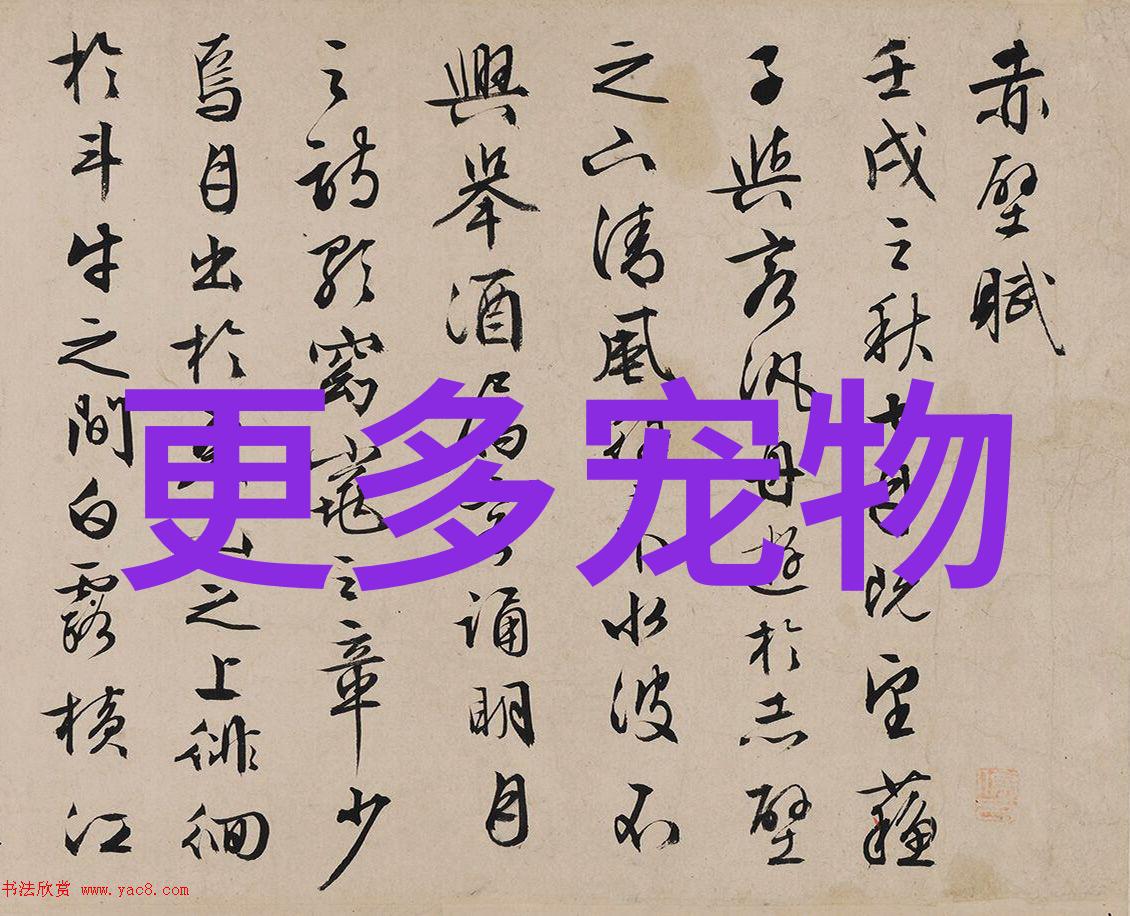 赤壁賦
壬戌之秋七月既望蘇
子與客汎舟遊於赤壁
之下清風徐來水波不
興舉酒屬客誦明月
之詩歌窈窕之章少
焉月出於東山之上徘徊
於斗牛之間白露橫江
更多宠物
书法欣赏 www.yac8.com